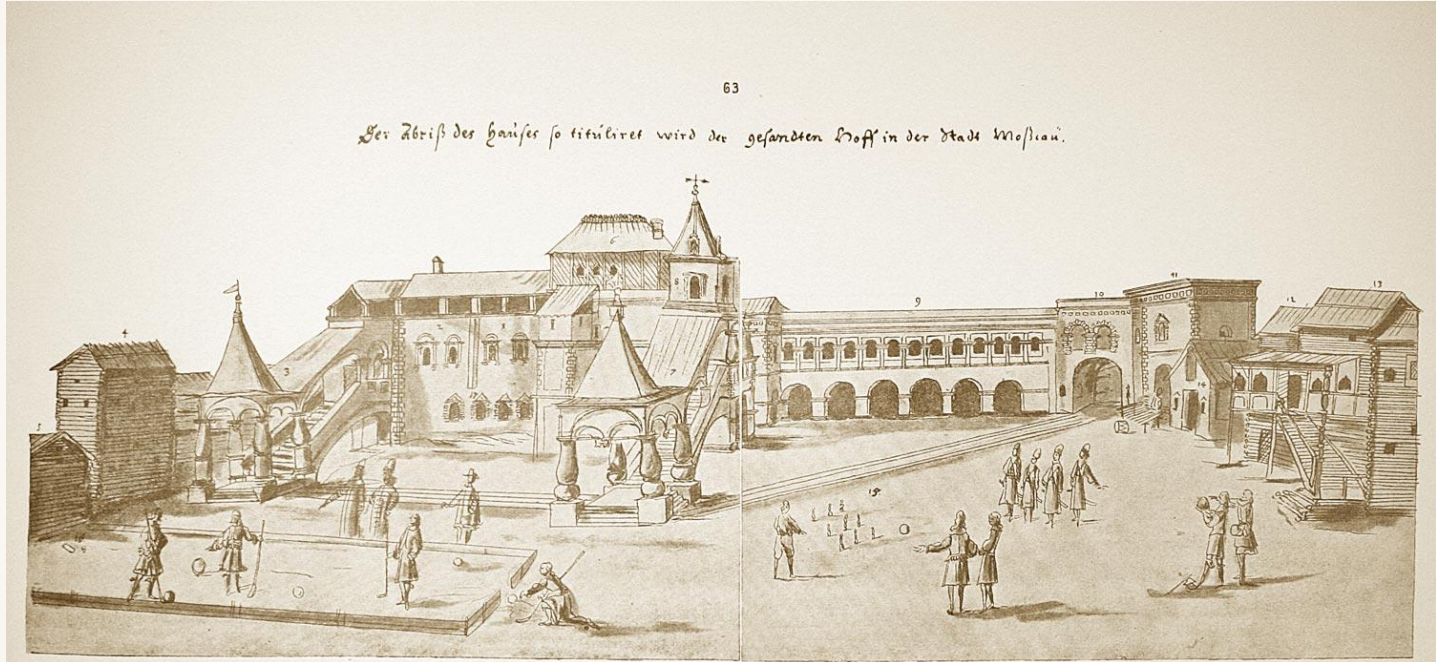 63
Der Abriß des Haußes so tituliret wird der gesandten Hoff in der Stadt Moßcau.
6
8
11
10
9
13
12
4
3
7
5
14
15